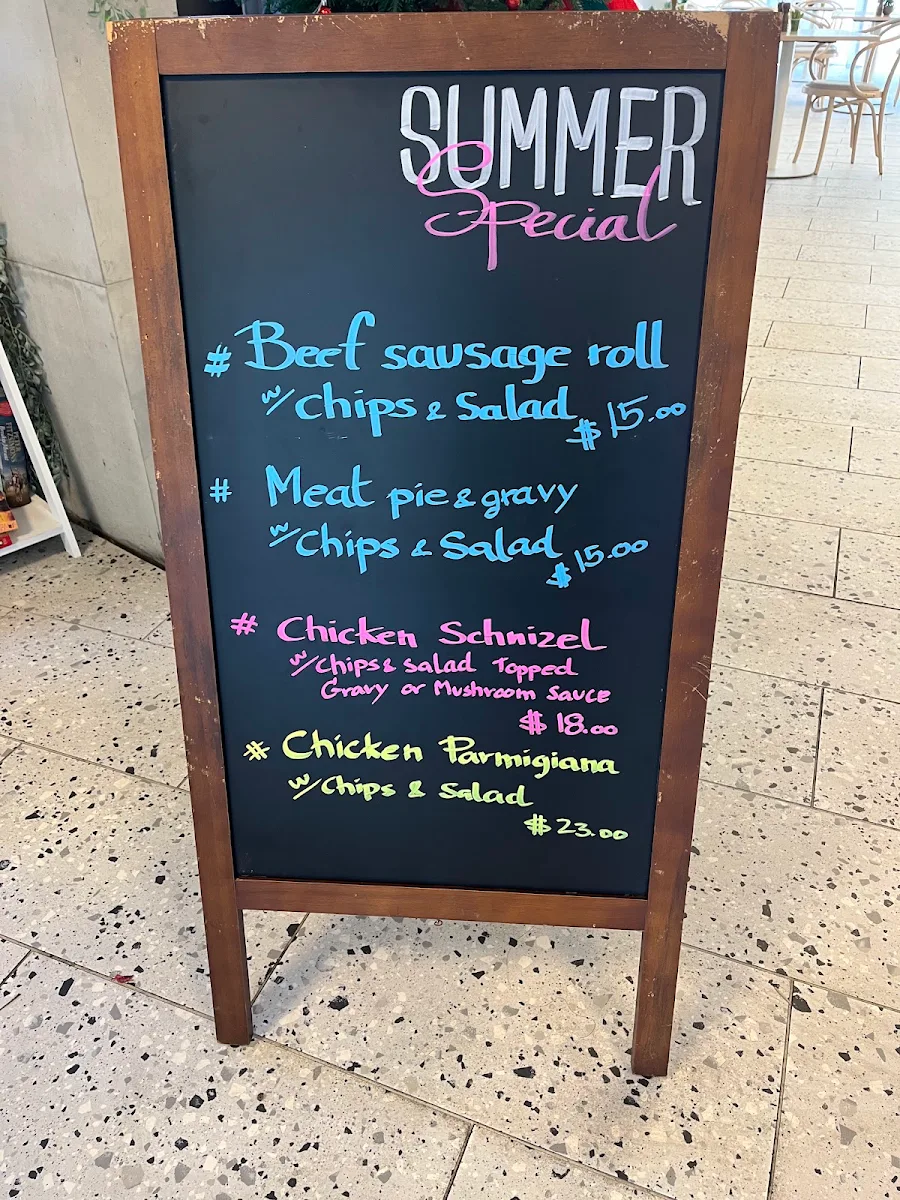 SUMMER
Special
# Beef sausage roll
w/ chips & Salad
$15.00
# Meat pie & gravy
w/ chips & Salad
$15.00
# Chicken Schnizel
w/ chips & salad Topped
Gravy or Mushroom Sauce
$18.00
# Chicken Parmigiana
w/ chips & salad
$23.00